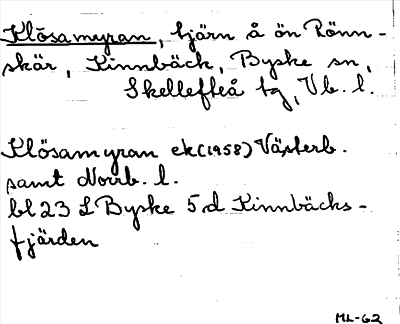 Klösamyran, tjärn å ön Rönn-
skär, Kinnbäck, Byske sn,
Skellefteå tg, Vb. l.
Klösamyran ek (1958) Västerb.
samt Norrb. l.
bl 23 L Byske 5 d Kinnbäcks-
fjärden
ML-62